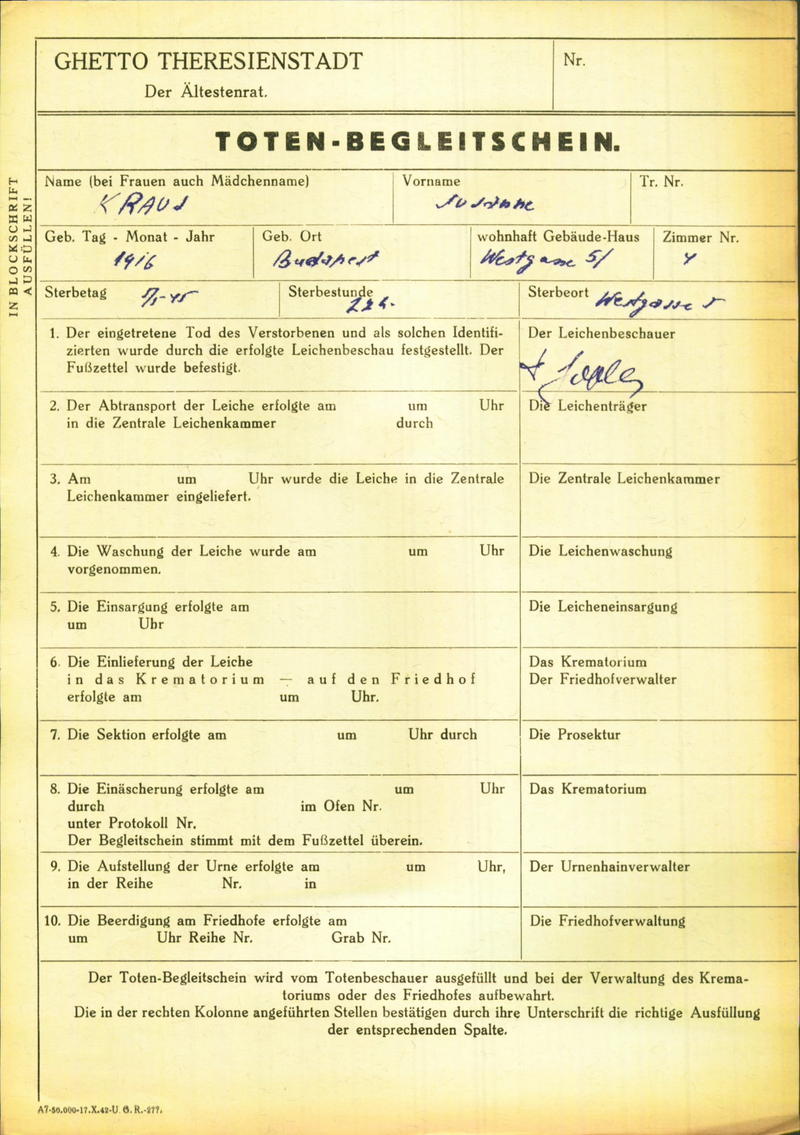 GHETTO THERESIENSTADT
Der Ältestenrat.
Nr.
TOTEN-BEGLEITSCHEIN.
IN BLOCKSCHRIFT
AUSFÜLLEN!
Name (bei Frauen auch Mädchenname)
KRAUS
Vorname
Susanne
Tr. Nr.
Geb. Tag - Monat - Jahr
1916
Geb. Ort
Budapest
wohnhaft Gebäude-Haus
Westgasse 5/
Zimmer Nr.
4
Sterbetag
Sterbestunde
Sterbeort Westgasse 5
1. Der eingetretene Tod des Verstorbenen und als solchen Identifi-
zierten wurde durch die erfolgte Leichenbeschau festgestellt. Der
Fußzettel wurde befestigt.
Der Leichenbeschauer
2. Der Abtransport der Leiche erfolgte am um Uhr
in die Zentrale Leichenkammer durch
Die Leichenträger
3. Am um Uhr wurde die Leiche in die Zentrale
Leichenkammer eingeliefert.
Die Zentrale Leichenkammer
4. Die Waschung der Leiche wurde am um Uhr
vorgenommen.
Die Leichenwaschung
5. Die Einsargung erfolgte am
um Uhr
Die Leicheneinsargung
6. Die Einlieferung der Leiche
in das Krematorium — auf den Friedhof
erfolgte am um Uhr.
Das Krematorium
Der Friedhofverwalter
7. Die Sektion erfolgte am um Uhr durch
Die Prosektur
8. Die Einäscherung erfolgte am um Uhr
durch im Ofen Nr.
unter Protokoll Nr.
Der Begleitschein stimmt mit dem Fußzettel überein.
Das Krematorium
9. Die Aufstellung der Urne erfolgte am um Uhr,
in der Reihe Nr. in
Der Urnenhainverwalter
10. Die Beerdigung am Friedhofe erfolgte am
um Uhr Reihe Nr. Grab Nr.
Die Friedhofverwaltung
Der Toten-Begleitschein wird vom Totenbeschauer ausgefüllt und bei der Verwaltung des Krema-
toriums oder des Friedhofes aufbewahrt.
Die in der rechten Kolonne angeführten Stellen bestätigen durch ihre Unterschrift die richtige Ausfüllung
der entsprechenden Spalte.
A7-50.000-17.X.42-U. G. R.-277.